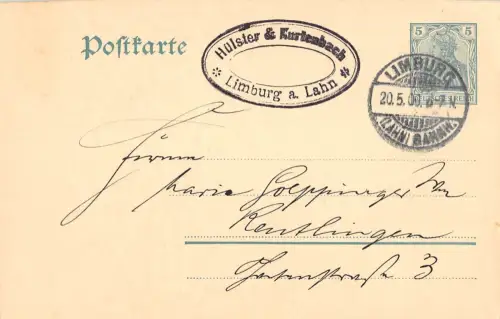 Postkarte
Hülster & Kurtenbach
Limburg a. Lahn
5 5
LIMBURG
20.5.09.
(LAHN) BAHNH.
Firma
Marie Goeppinger Wwe
Reutlingen
Gartenstraße 3